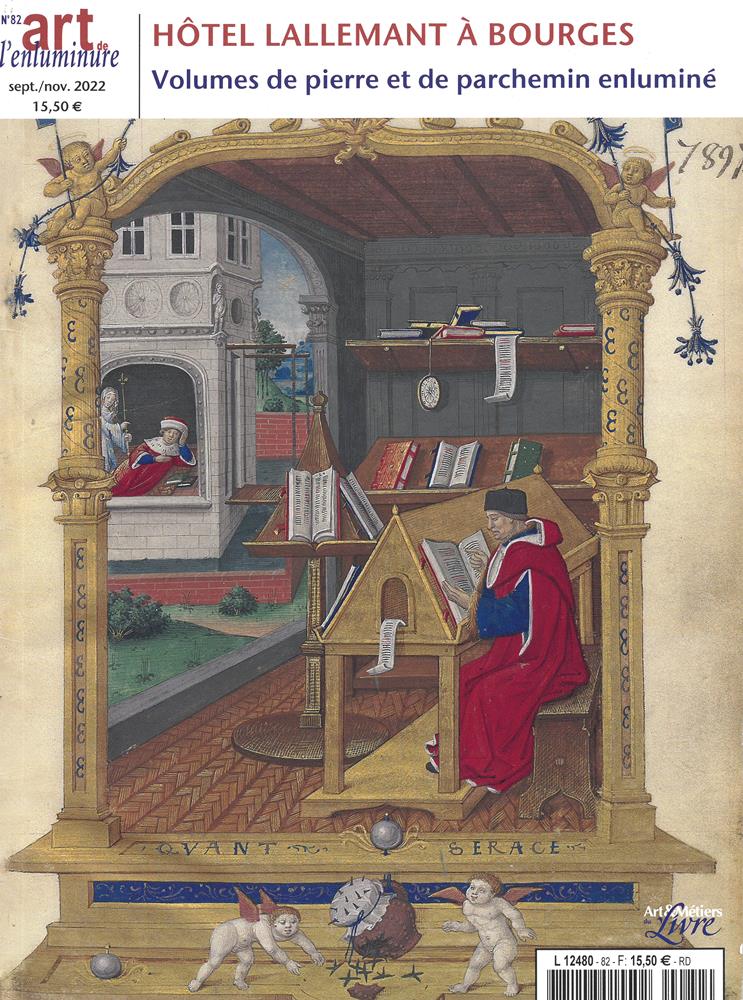 N°82
art de
l'enluminure
sept./nov. 2022
15,50 €
HÔTEL LALLEMANT À BOURGES
Volumes de pierre et de parchemin enluminé
789
QVANT SERACE
Art&Métiers
du Livre
L 12480 - 82 - F: 15,50 € - RD